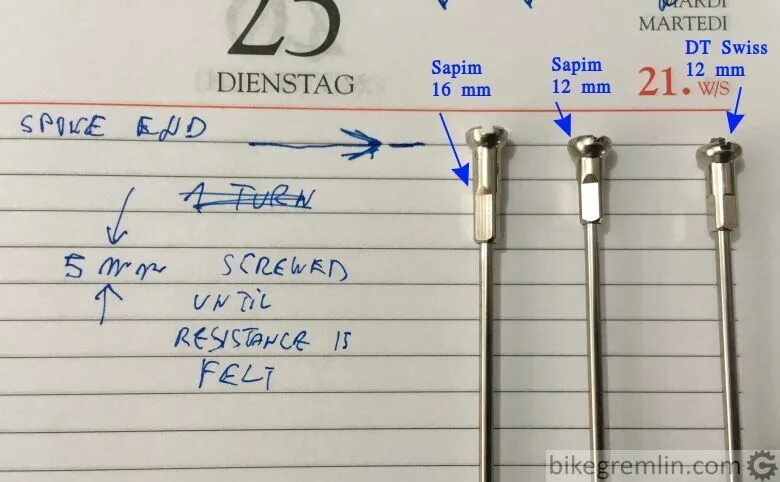 25
DIENSTAG
MARDI
MARTEDI
21. W/S
Sapim
16 mm
Sapim
12 mm
DT Swiss
12 mm
SPOKE END
1 TURN
5 mm SCREWED
UNTIL
RESISTANCE IS
FELT
bikegremlin.com